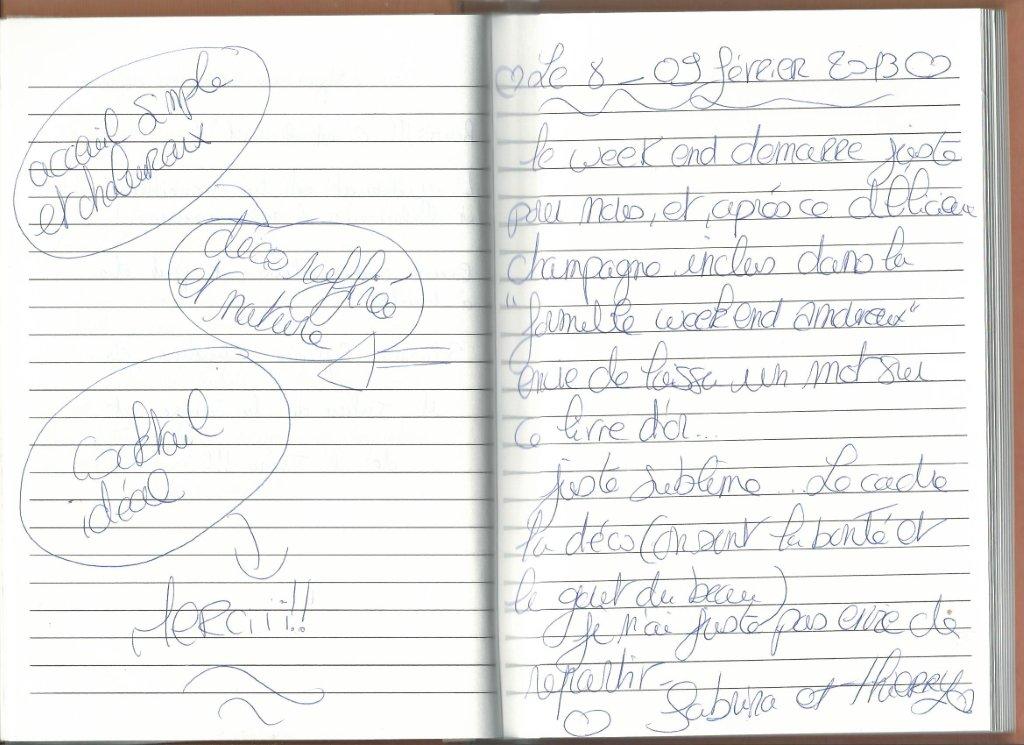 accueil simple
et chaleureux
déco raffinée
et nature
Cocktail
idéal
Merciii!!
Le 8 - 09 février 2013
le week end démarre juste
pour nous, et, après ce délicieux
champagne inclus dans la
"formule week end amoureux"
envie de laisser un mot sur
ce livre d'or...
juste sublime... Le cadre
la déco (on sent la bonté et
le gout du beau)
Je n'ai juste pas envie de
repartir -
Sabrina et Thierry